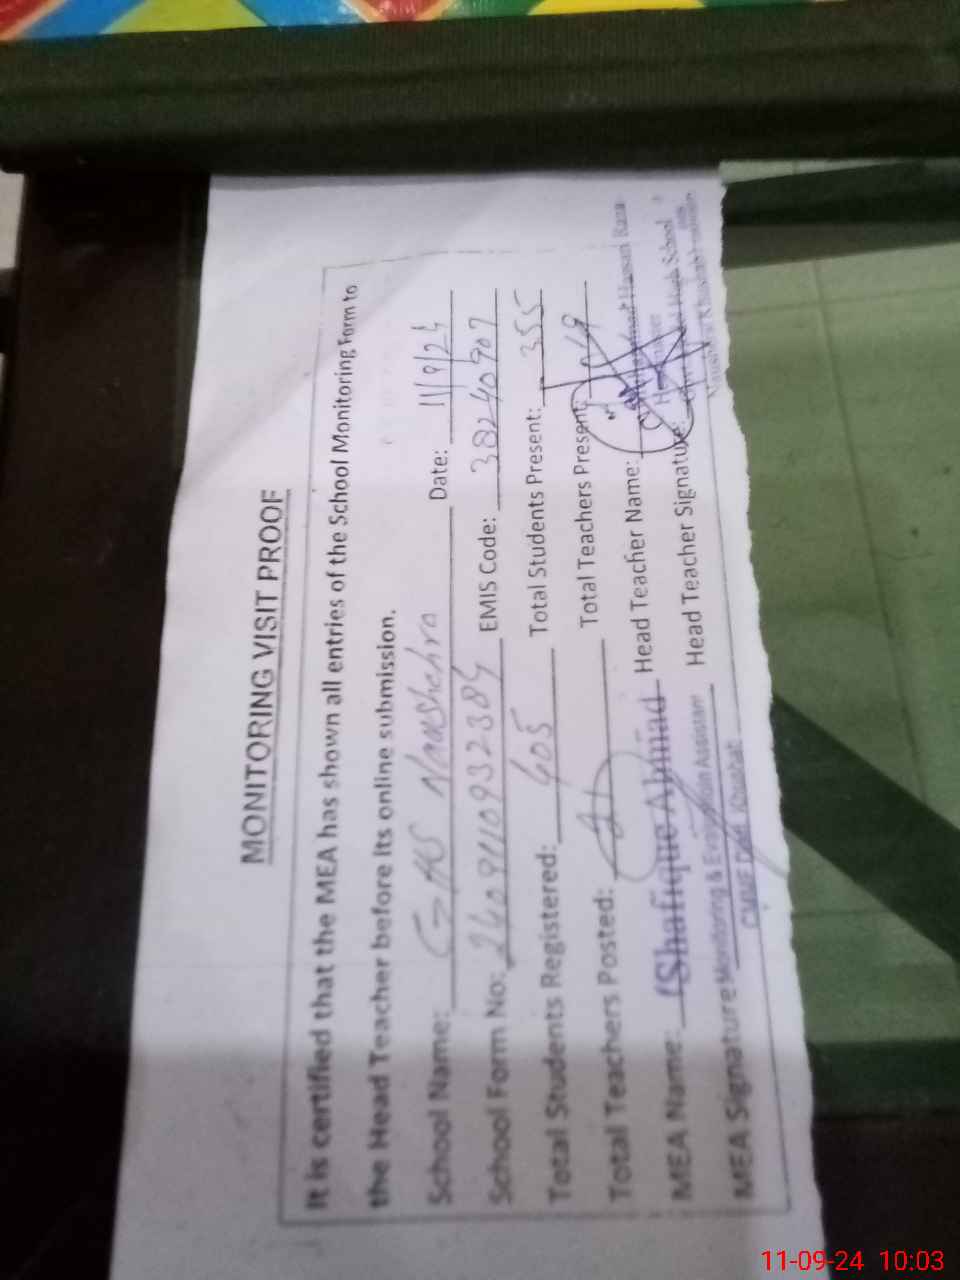 MONITORING VISIT PROOF
It is certified that the MEA has shown all entries of the School Monitoring Form to
the Head Teacher before its online submission.
School Name: GHS Naushehra Date: 11/9/24
School Form No: EMIS Code: 38240907
Total Students Registered: 405 Total Students Present: 355
Total Teachers Posted: 21 Total Teachers Present: 19
MEA Name: (Shafique Ahmad Head Teacher Name: Hassan Raza
MEA Signature Monitoring & Evaluation Assistant Head Teacher Signature: High School
CMMF Khushab
11-09-24 10:03